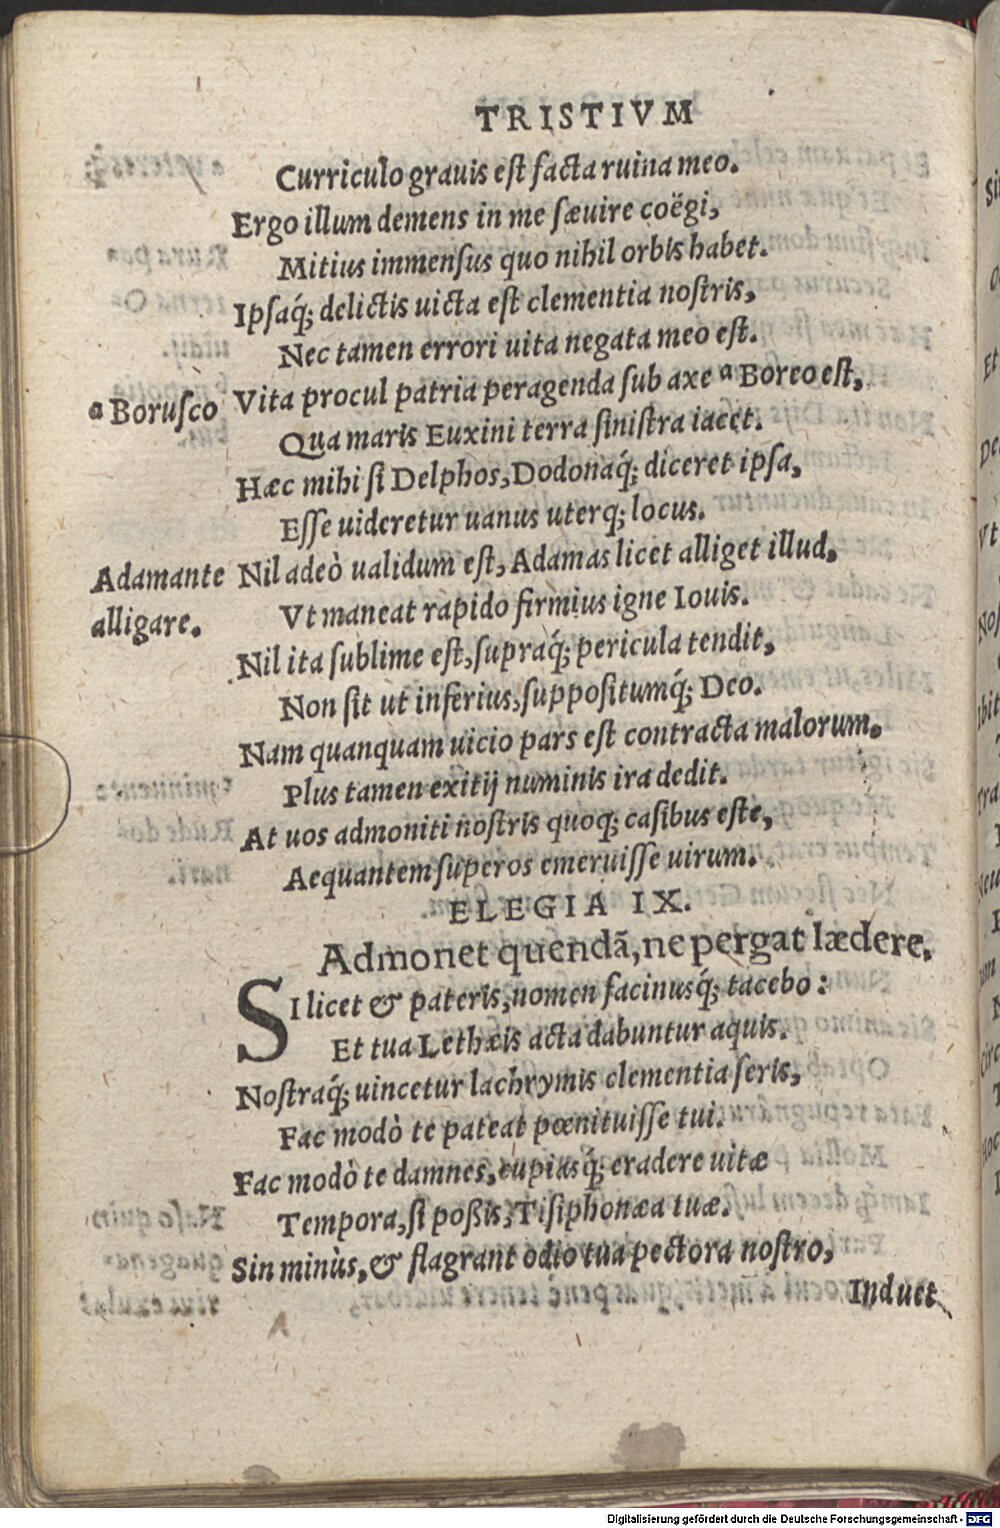 TRISTIVM
Curriculo grauis est facta ruina meo.
Ergo illum demens in me sæuire coëgi,
Mitius immensus quo nihil orbis habet.
Ipsaq́; delictis uicta est clementia nostris,
Nec tamen errori uita negata meo est.
Vita procul patria peragenda sub axe ª Boreo est,
ª Borusco
Qua maris Euxini terra sinistra iacet.
Hæc mihi si Delphos, Dodonaq́; diceret ipsa,
Esse uideretur uanus uterq; locus.
Nil adeò ualidum est, Adamas licet alliget illud,
Adamante
alligare.
Vt maneat rapido firmius igne Iouis.
Nil ita sublime est, supraq́; pericula tendit,
Non sit ut inferius, suppositumq́; Deo.
Nam quanquam uicio pars est contracta malorum.
Plus tamen exitij numinis ira dedit.
At uos admoniti nostris quoq; casibus este,
Aequantem superos emeruisse uirum.
ELEGIA IX.
Admonet quendã, ne pergat lædere.
SI licet & pateris, nomen facinusq́; tacebo:
Et tua Lethæis acta dabuntur aquis.
Nostraq́; uincetur lachrymis clementia seris,
Fac modò te pateat pœnituisse tui.
Fac modò te damnes, cupiasq́; eradere uitæ
Tempora, si poßis, Tisiphonæa tuæ.
Sin minùs, & flagrant odio tua pectora nostro,
Induet
Digitalisierung gefördert durch die Deutsche Forschungsgemeinschaft - DFG